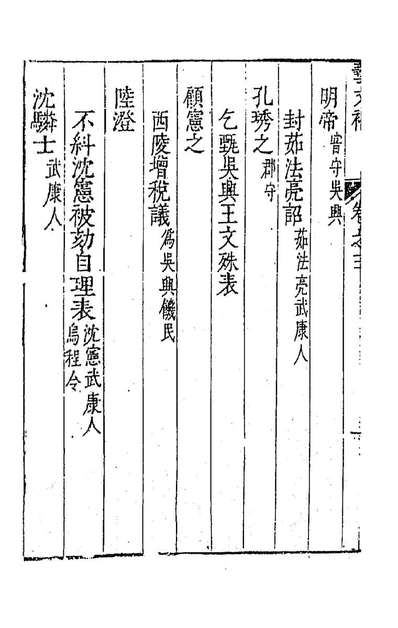 明帝嘗守吳興
封茹法亮詔茹法亮武康人
孔琇之郡守
乞甄吳興王文殊表
顧憲之
西陵增稅議為吳興饑民
陸澄
不糾沈憲被劾自理表沈憲武康人烏程令
沈驎士武康人